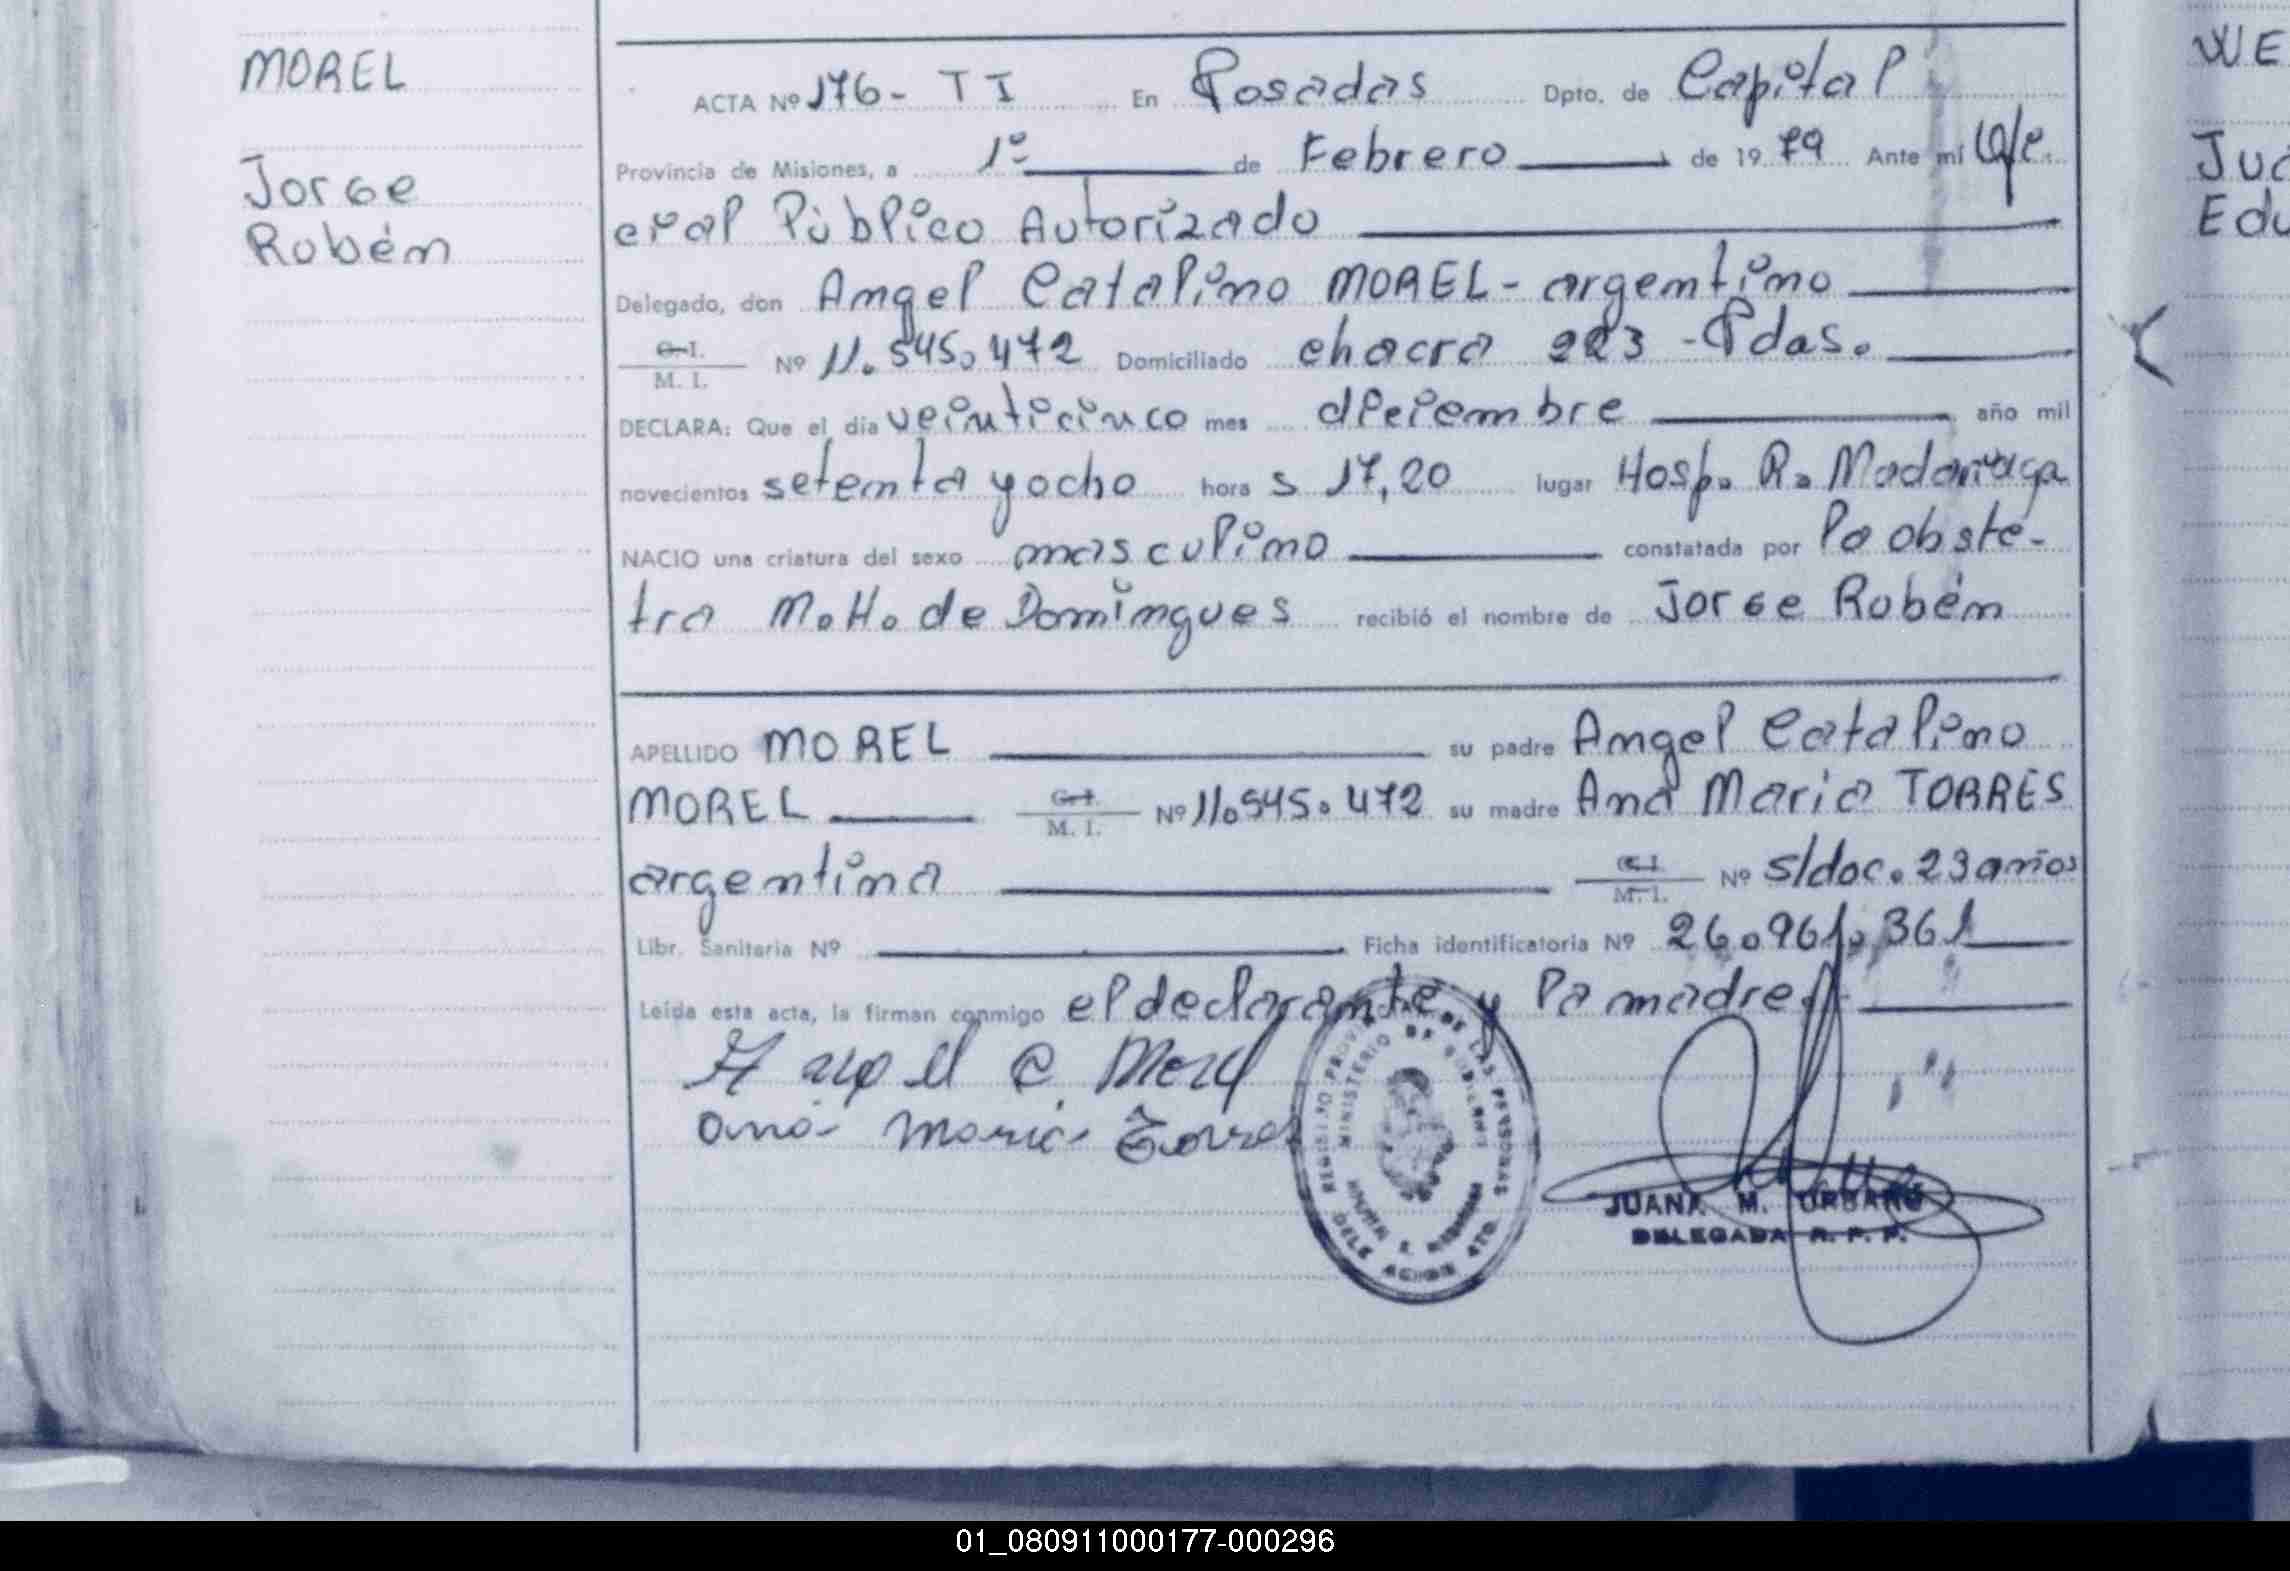 MOREL
Jorge
Rubén
ACTA Nº 176- TI En Posadas Dpto. de Capital
Provincia de Misiones, a 1º de Febrero de 1979 Ante mí Ofi-
cial Público Autorizado
Delegado, don Angel Catalino MOREL - argentino
C. I. / M. I. Nº 11.545.472 Domiciliado chacra 223 - Pdas.
DECLARA: Que el día veinticinco mes diciembre año mil
novecientos setenta y ocho hora s 17,20 lugar Hosp. R. Madariaga
NACIO una criatura del sexo masculino constatada por la obste-
tra M. H. de Domingues recibió el nombre de Jorge Rubén
APELLIDO MOREL su padre Angel Catalino
MOREL C. I. / M. I. Nº 11.545.472 su madre Ana Maria TORRES
argentina C. I. / M. I. Nº s/doc. 23 años
Libr. Sanitaria Nº Ficha identificatoria Nº 26.961.361
Leída esta acta, la firman conmigo el declarante y la madre.
Angel C. Morel
Ana Maria Torres
REGISTRO PROVINCIAL DE LAS PERSONAS
MINISTERIO DE GOBIERNO
JUANA M. URBANO
DELEGADA R. P. P.
WE
Jua
Edu
01_080911000177-000296